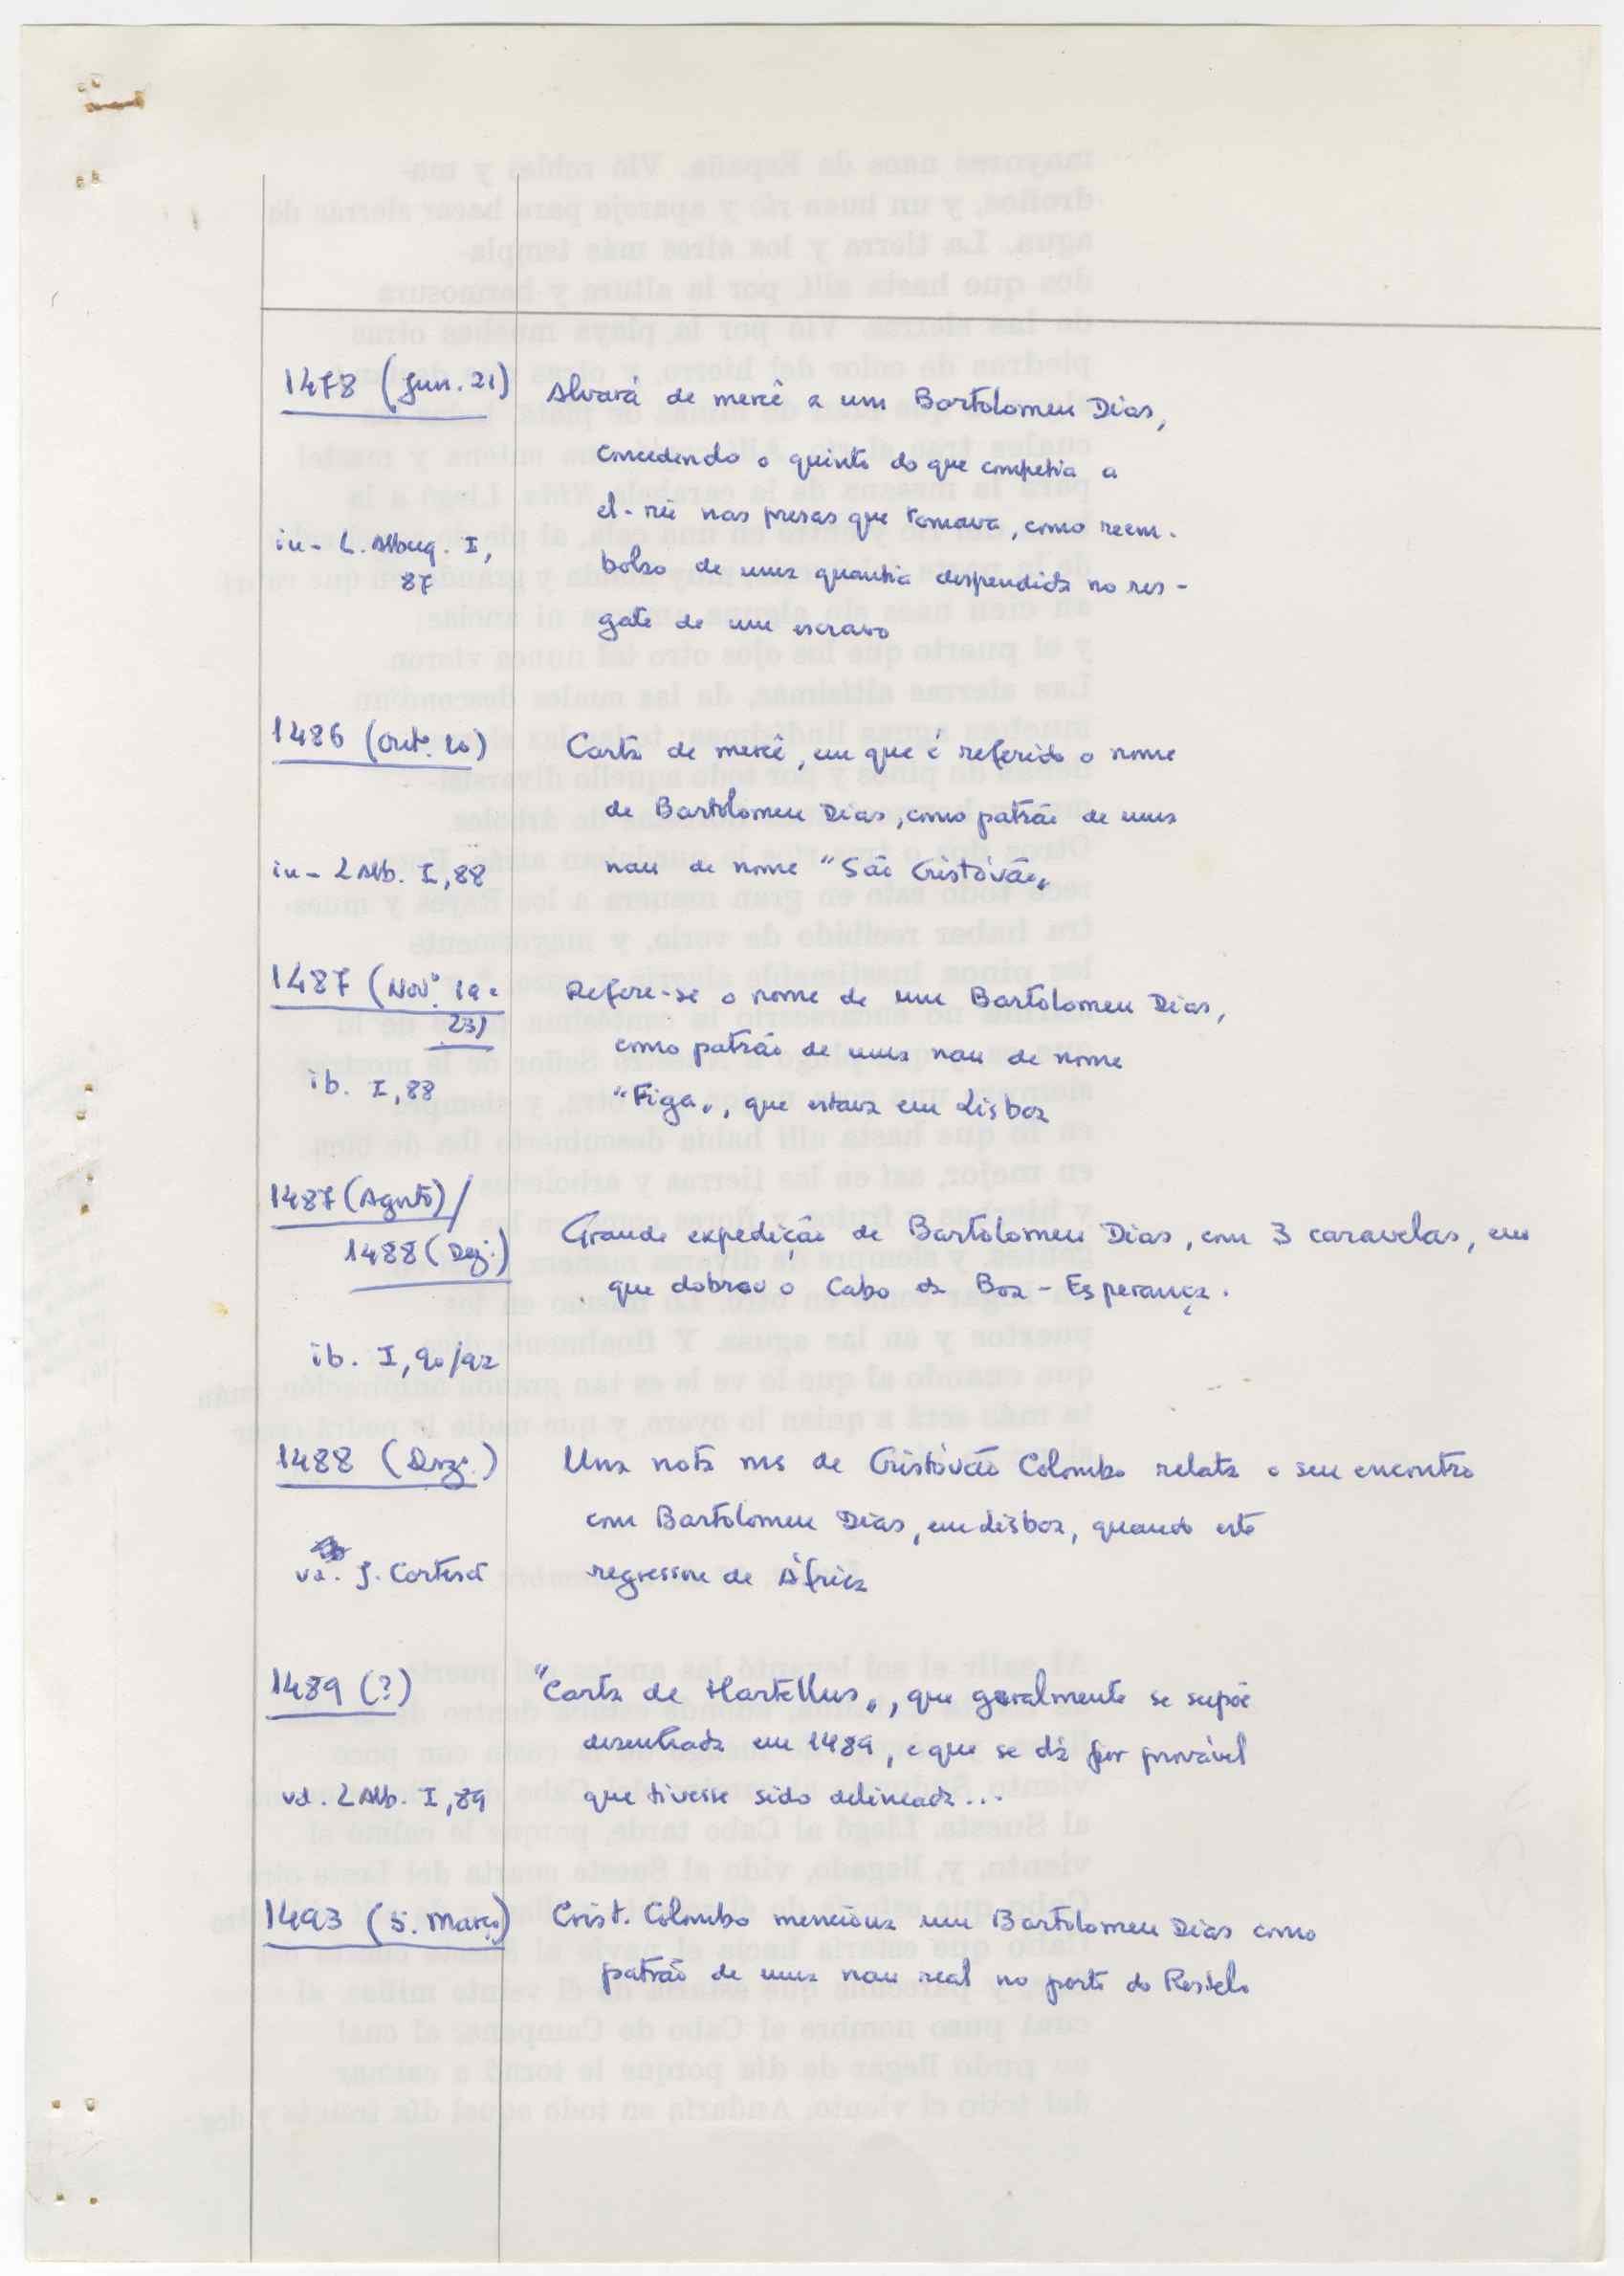 1478 (Jun. 21)
Alvará de mercê a um Bartolomeu Dias,
concedendo o quinto do que competia a
el-rei nas presas que tomava, como reem-
in - L. Albuq. I,
87
bolso de uma quantia despendida no res-
gate de um escravo
1486 (Outº. 10)
Carta de mercê, em que é referido o nome
de Bartolomeu Dias, como patrão de uma
in - L Alb. I, 88
nau de nome "São Cristóvão"
1487 (Novº. 19 e
23)
Refere-se o nome de um Bartolomeu Dias,
como patrão de uma nau de nome
ib. I, 88
"Figa", que estava em Lisboa
1487 (Agosto) /
1488 (Dez.)
Grande expedição de Bartolomeu Dias, com 3 caravelas, em
que dobrou o Cabo da Boa-Esperança.
ib. I, 90/92
1488 (Dez.)
Uma nota ms de Cristóvão Colombo relata o seu encontro
com Bartolomeu Dias, em Lisboa, quando este
vd. J. Cortesã
regressou de África
1489 (?)
"Carta de Martellus", que geralmente se supõe
desenhada em 1489, e que se dá por provável
vd. L Alb. I, 89
que tivesse sido delineada...
1493 (5. Março)
Crist. Colombo menciona um Bartolomeu Dias como
patrão de uma nau real no porto do Restelo